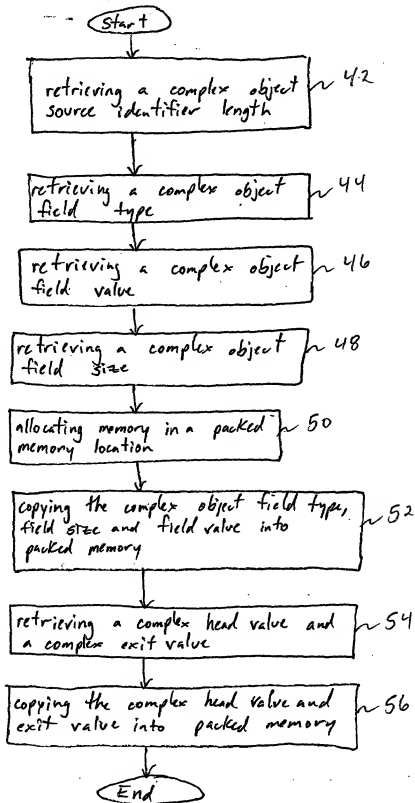 Start
retrieving a complex object
source identifier length
42
retrieving a complex object
field type
44
retrieving a complex object
field value
46
retrieving a complex object
field size
48
allocating memory in a packed
memory location
50
copying the complex object field type,
field size and field value into
packed memory
52
retrieving a complex head value and
a complex exit value
54
copying the complex head value and
exit value into packed memory
56
End